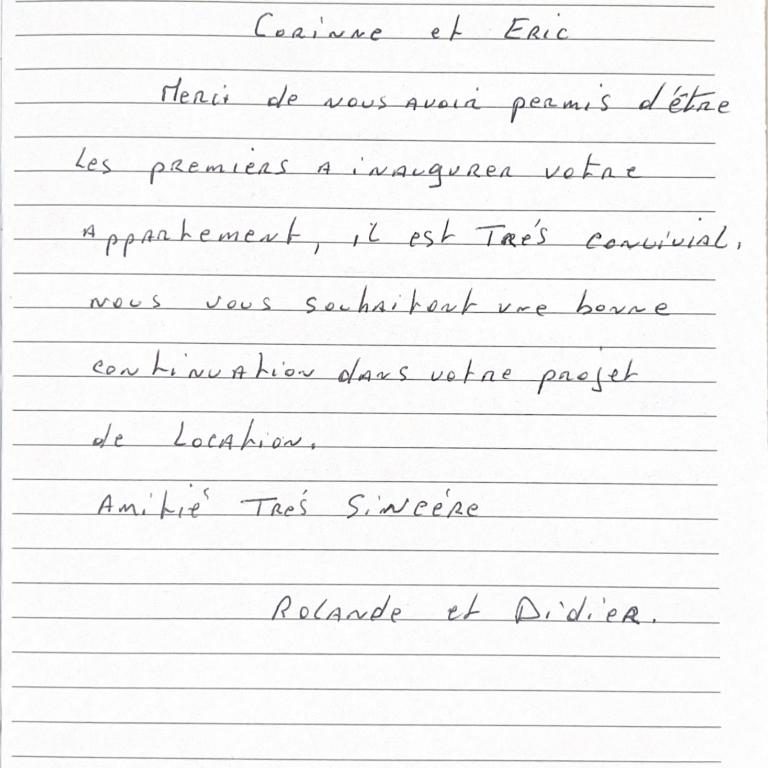 Corinne et Eric
Merci de nous avoir permis d'être
les premiers a inaugurer votre
appartement, il est Trés convivial,
nous vous souhaitont une bonne
continuation dans votre projet
de Location.
Amitié Trés Sincére
Rolande et Didier.